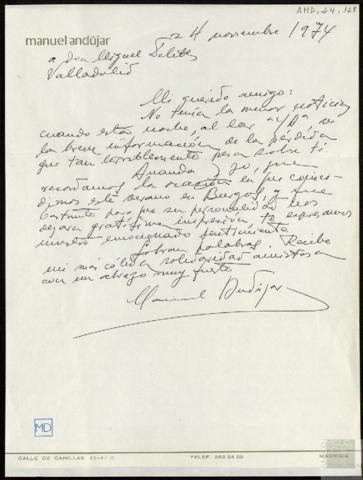 AMD, 24, 128
a 4 noviembre 1974
manuel andújar
a don Miguel Delibes
Valladolid
Mi querido amigo:
No tenía la menor noticia
cuando esta noche, al leer "YA", de
la breve información de la pérdida
que tan terriblemente pesa sobre ti
Ananda y yo, que
recordamos la ocasión en que coinci-
dimos este verano en Burgos, y que
bastante para que su personalidad nos
dejara gratísima impresión, te expresamos
nuestro emocionado sentimiento.
Sobran palabras. Recibe
mi más cálida solidaridad amistosa
con un abrazo muy fuerte
Manuel Andújar
MD
CALLE DE CANILLAS
TELEF.
MADRID-2